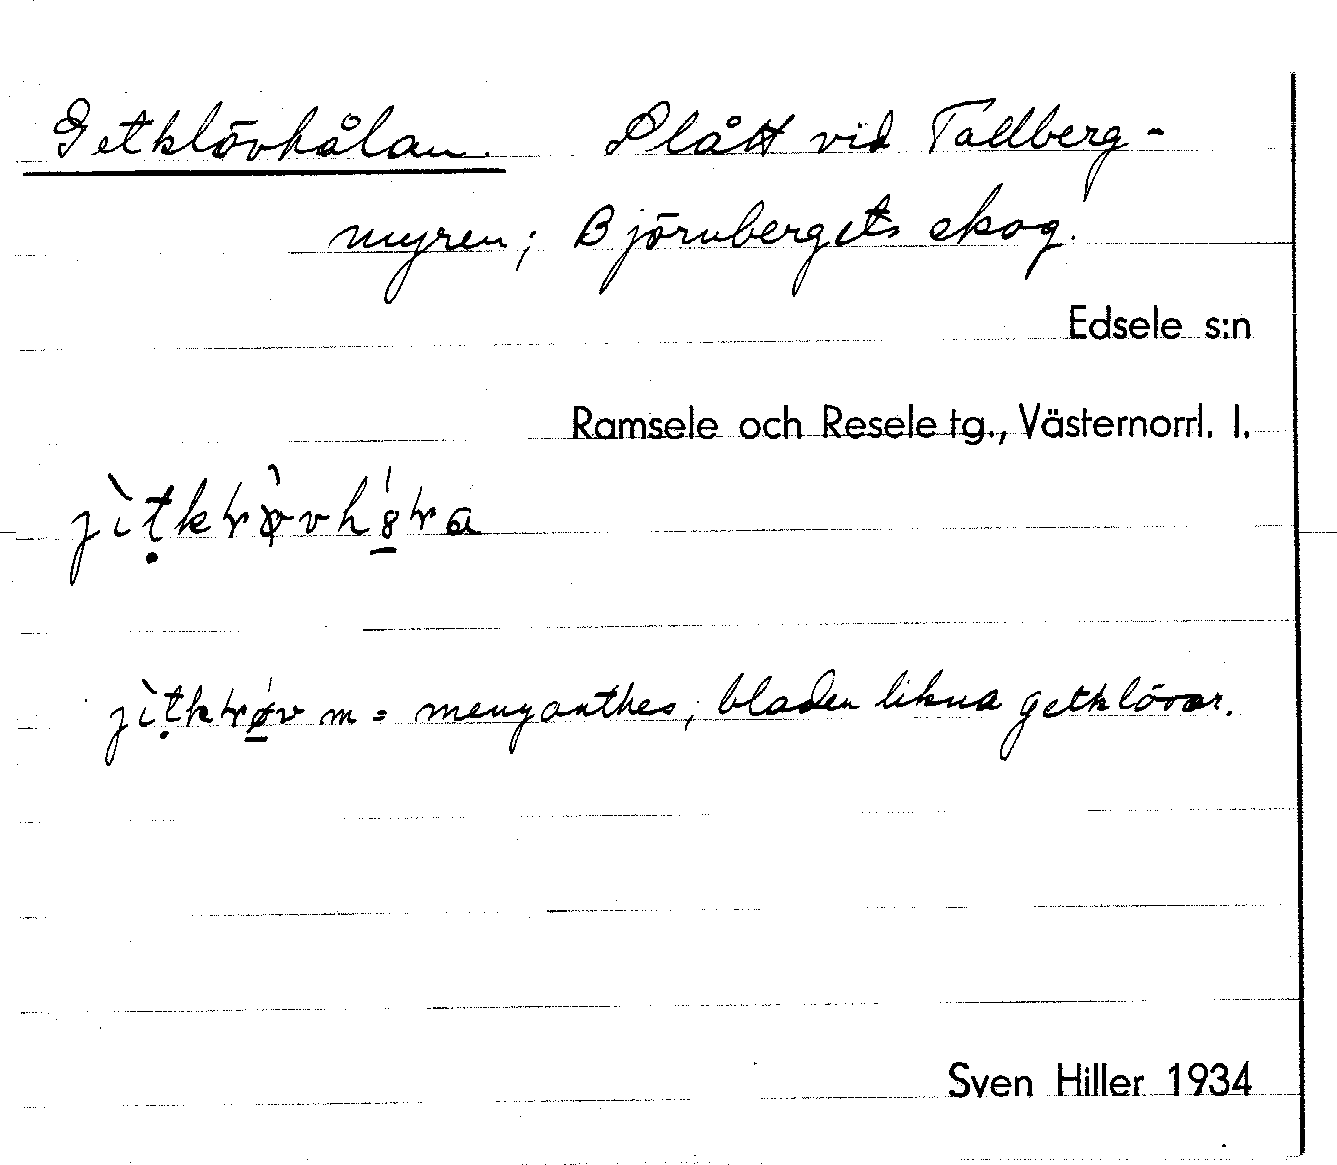 Getklövhålan. Slått vid Tallberg-
myren; Björnbergets skog.
Edsele s:n
Ramsele och Resele tg., Västernorrl. l.
m = menyanthes; bladen likna getklövar.
Sven Hiller 1934